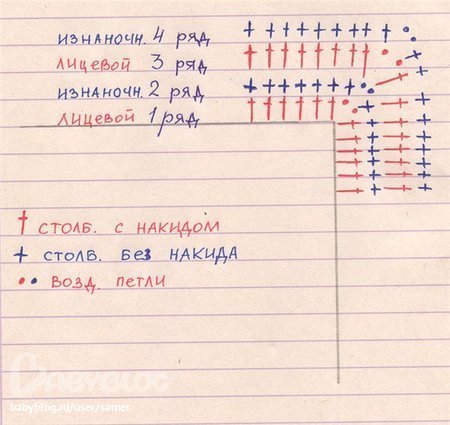 изнаночн. 4 ряд
лицевой 3 ряд
изнаночн. 2 ряд
лицевой 1 ряд
столб. с накидом
столб. без накида
возд. петли
babyblog.ru/user/samer